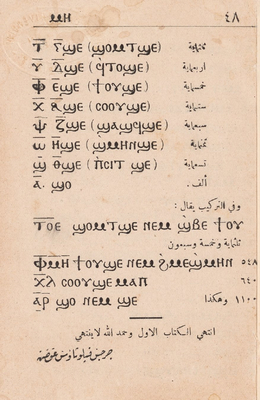 ⲙⲏ ٤٨
Ⲧ̅ ⲅ̅ϣⲉ (ϣⲟⲙⲧϣⲉ) ثلثماية
Ⲩ̅ ⲇ̅ϣⲉ (ϥⲧⲟϣⲉ) اربعماية
Ⲫ̅ ⲉ̅ϣⲉ (ϯⲟⲩϣⲉ) خمسماية
Ⲭ̅ ⲋ̅ϣⲉ (ⲥⲟⲟⲩϣⲉ) ستماية
Ⲯ̅ ⲍ̅ϣⲉ (ϣⲁϣϥϣⲉ) سبعماية
Ⲱ̅ ⲏ̅ϣⲉ (ϣⲙⲏⲛϣⲉ) ثمنماية
ⲑ̅ϣⲉ (ⲯⲓⲧ ϣⲉ) تسعماية
ⲁ̅. ϣⲟ ألف .
وفى التركيب يقال :
ⲧⲟⲉ ϣⲟⲙⲧϣⲉ ⲛⲉⲙ ϣⲃⲉ ϯⲟⲩ
ثلثماية وخمسة وسبعون
ⲫⲙⲏ ϯⲟⲩϣⲉ ⲛⲉⲙ ϩⲙⲉϣⲙⲏⲛ ٥٤٨
ⲥⲟⲟⲩϣⲉ ٦٤٠
ⲁⲣ ϣⲟ ⲛⲉⲙ ϣⲉ ١١٠٠ وهكذا
انتهى الكتاب الاول وحمد الله لاينتهى
جرجس فيلوثاوس عوض